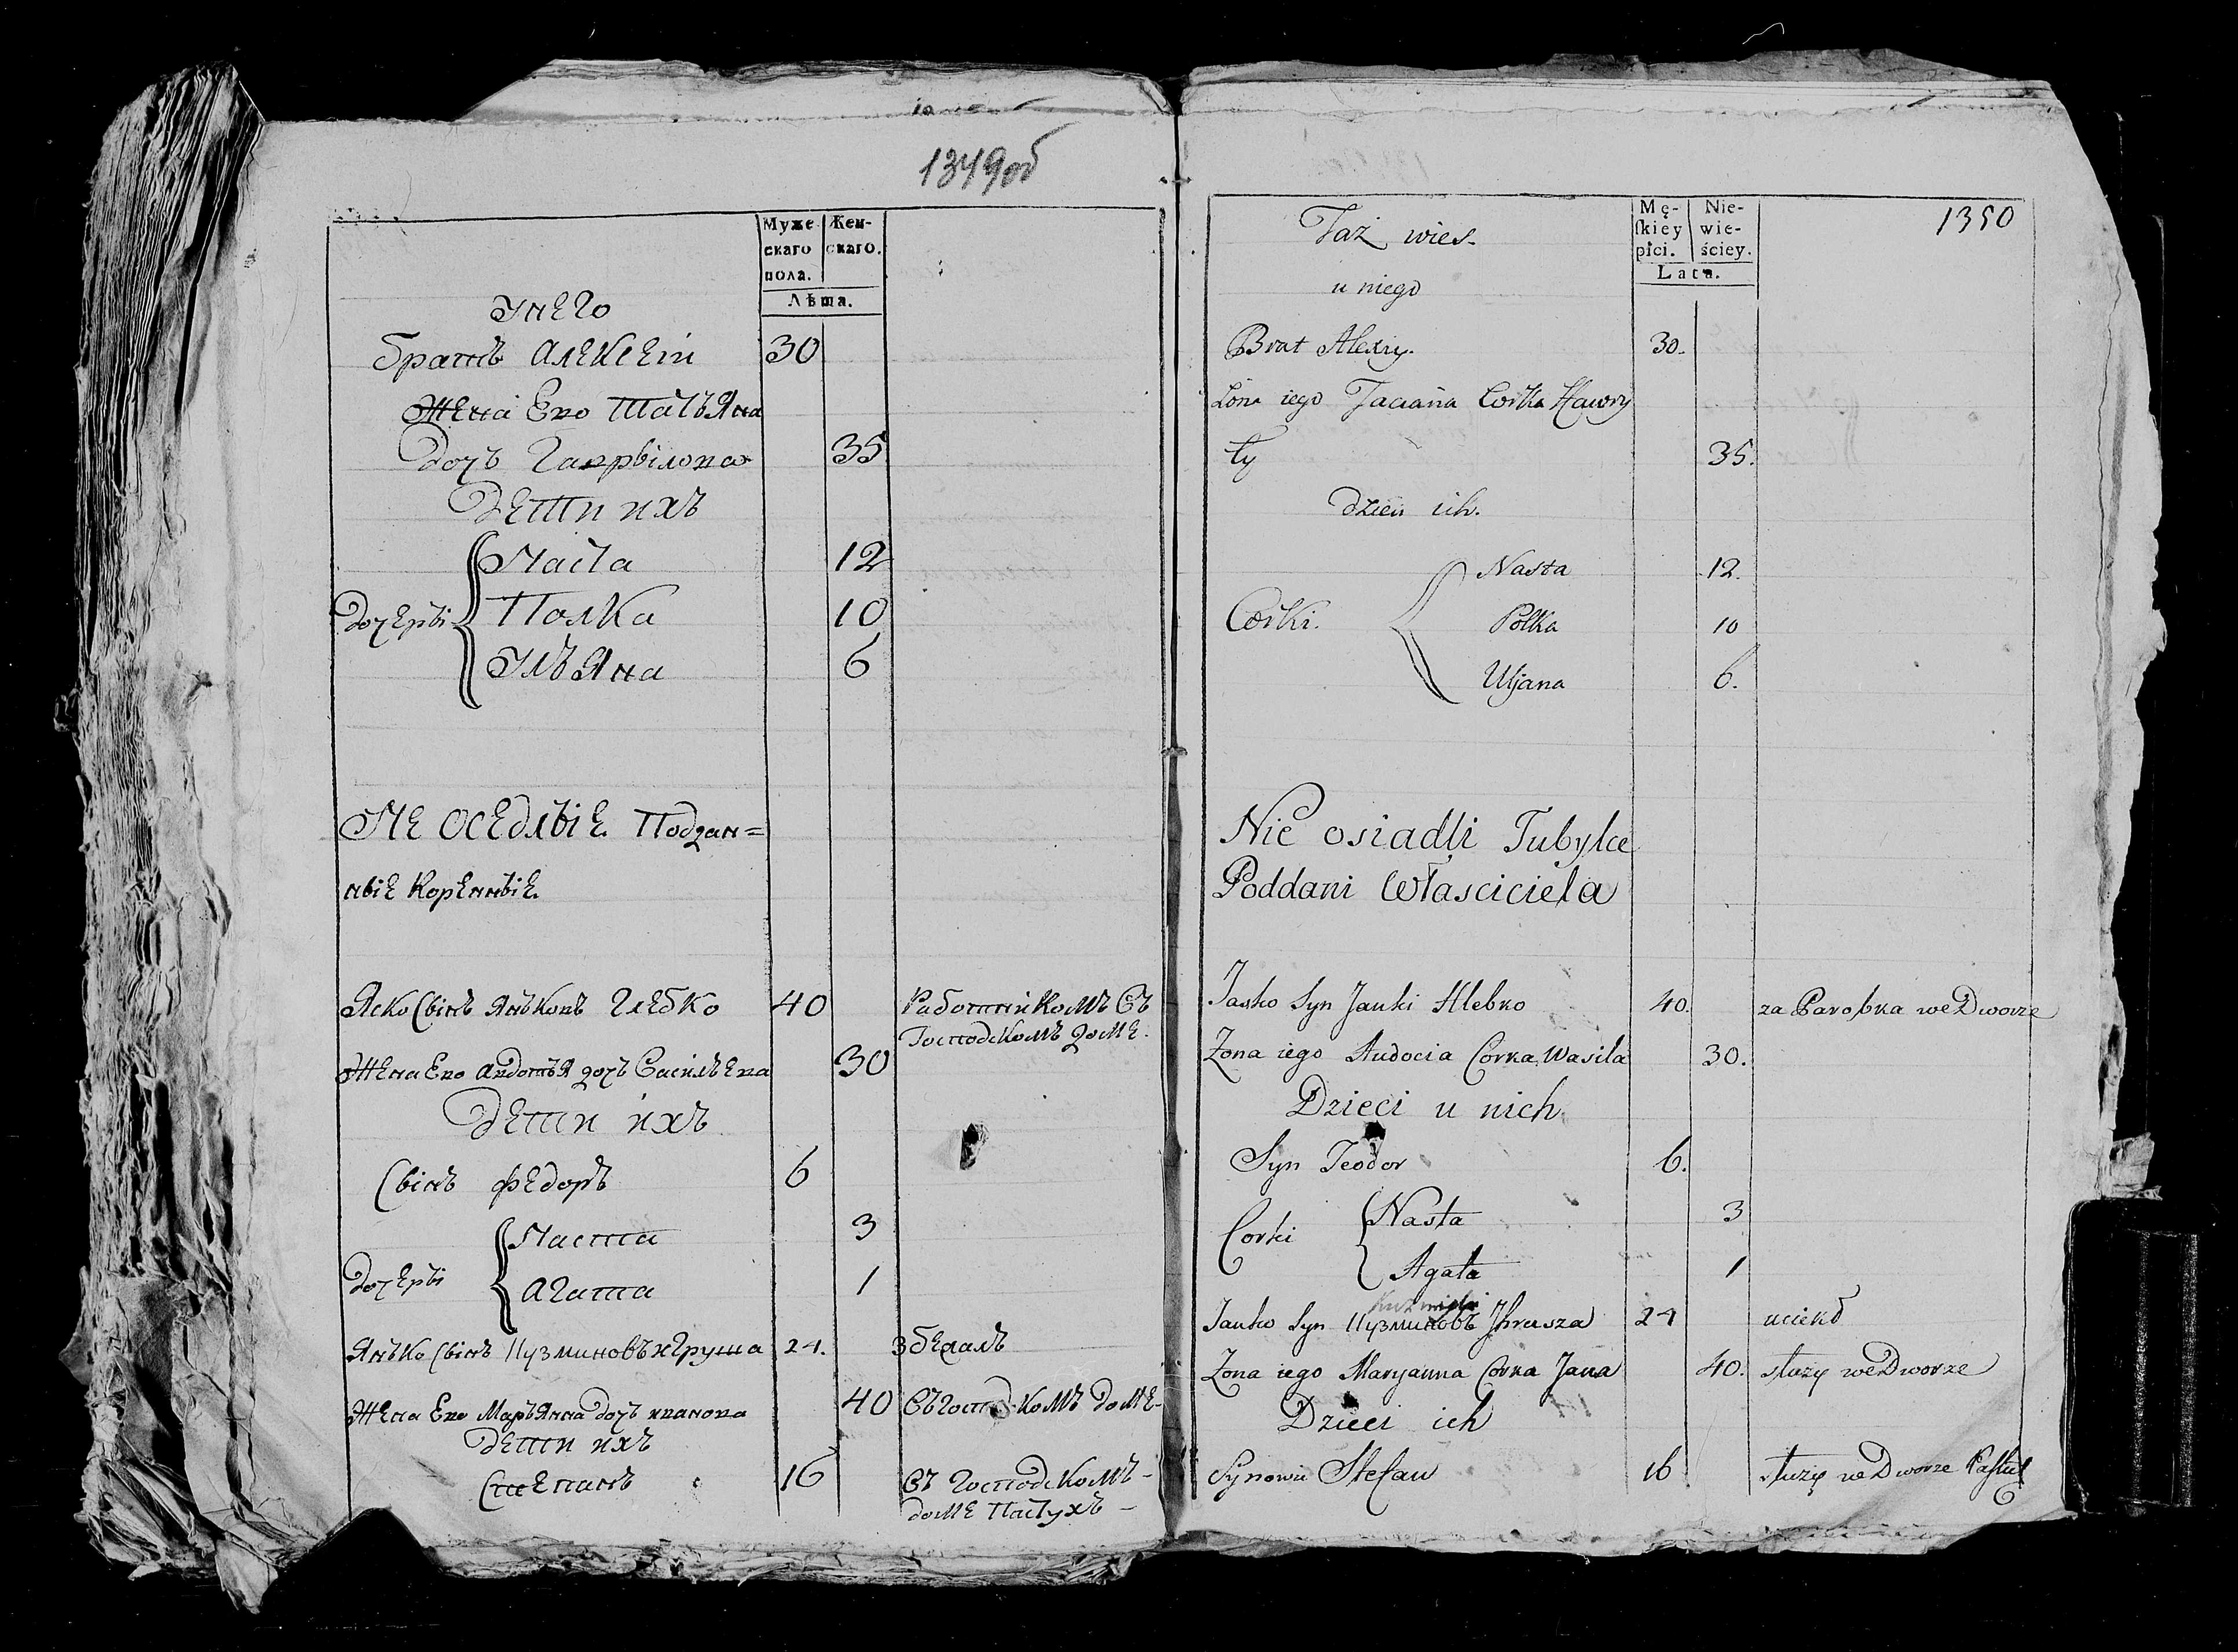 1349об
Муже- Жен-
скаго скаго.
пола.
Лѣта.
У нЕго
братъ АлЕксЕй 30
ЖЕна Его ТатьЯна
дочь Гаврвілова 35
ДЕти ихъ
Наста 12
дочЕрві Полка 10
УльЯна 6
НЕ ОсЕдлвіЕ Поддан=
нвіЕ КорЕннвіЕ
Яско Свінъ Янъковъ ГлЕбко 40 Работникомъ Въ
Господскомъ домЕ.
ЖЕна Его АвдотьЯ дочь ВасильЕва 30
ДЕти ихъ
Свінъ ФЕдоръ 6
Наста 3
дочЕрві Агата 1
Янъко Свінъ Кузминовъ Хгруша 24. Збежалъ
ЖЕна Его МаръЯнна дочь Иванова 40 Въ Господскомъ домЕ-
ДЕти ихъ
СтЕпанъ 16 Въ Господскомъ-
домЕ Пастухъ-
1350
Taż wies.
Mę- Nie-
skiey wie-
płci. ściey.
Lata.
u niego
Brat Alexiy. 30.
Żona iego Taciana Corka Hawry
ły 35.
dzieci ich.
Nasta 12.
Corki. Połka 10
Uljana 6.
Nie osiadli Tubylce
Poddani Własciciela
Jasko Syn Janki Hlebko 40. za Parobka we Dworze
Zona iego Audocia Corka Wasila 30.
Dzieci u nich
Syn Teodor 6.
Corki Nasta 3
Agata 1
Kuzmicki
Janko Syn Кузминовъ Jhrusza 24 uciekł
Zona iego Maryanna Corka Jana 40. służy we Dworze
Dzieci ich
Synowie Stefan 16 służy we Dworze Pastuch